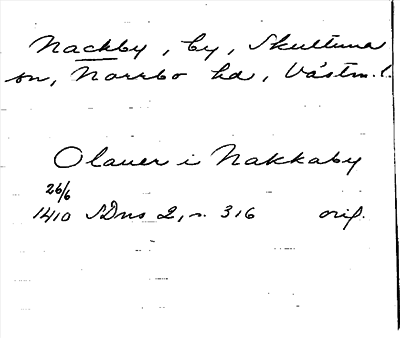 Nackby, by, Skultuna
sn, Norrbo hd, Västm. l.
Olauer i Nakkaby
26/6
1410 SDns 2, s. 316 orig.